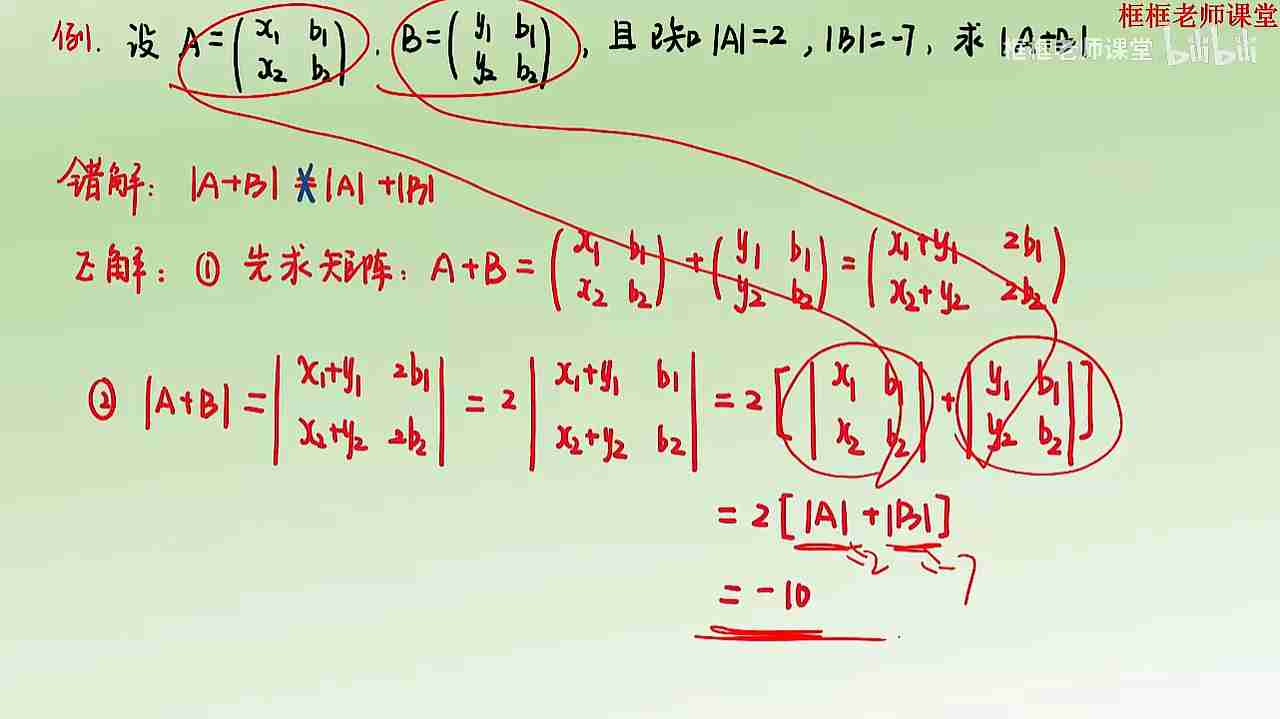 框框老师课堂
例. 设 A=(x₁ b₁ x₂ b₂), B=(y₁ b₁ y₂ b₂), 且已知|A|=2, |B|=-7, 求 |A+B|
框框老师课堂 bilibili
错解: |A+B| ≠ |A| + |B|
正解: ① 先求矩阵: A+B = (x₁ b₁ x₂ b₂) + (y₁ b₁ y₂ b₂) = (x₁+y₁ 2b₁ x₂+y₂ 2b₂)
② |A+B| = |x₁+y₁ 2b₁ x₂+y₂ 2b₂| = 2 |x₁+y₁ b₁ x₂+y₂ b₂| = 2 [|x₁ b₁ x₂ b₂| + |y₁ b₁ y₂ b₂|]
= 2 [|A| + |B|]
=2 =-7
= -10